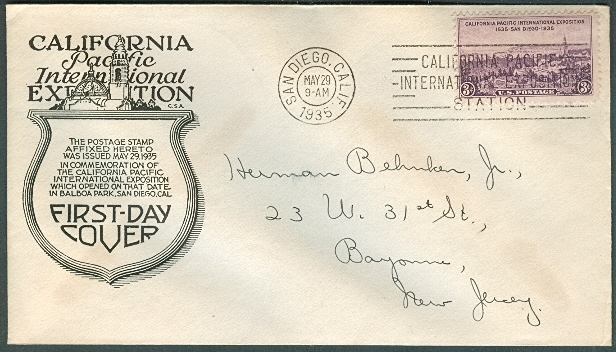 CALIFORNIA
Pacific
International
EXPOSITION
C.S.A.
THE POSTAGE STAMP
AFFIXED HERETO
WAS ISSUED MAY 29, 1935
IN COMMEMORATION OF
THE CALIFORNIA PACIFIC
INTERNATIONAL EXPOSITION
WHICH OPENED ON THAT DATE
IN BALBOA PARK, SAN DIEGO, CAL.
FIRST-DAY
COVER
SAN DIEGO, CALIF.
MAY 29
9-AM
1935
CALIFORNIA PACIFIC
INTERNATIONAL EXPOSITION
STATION
CALIFORNIA PACIFIC INTERNATIONAL EXPOSITION
1535-SAN DIEGO-1935
3¢ U.S. POSTAGE 3¢
Herman Behnken, Jr.,
23 W. 31st St.,
Bayonne,
New Jersey.